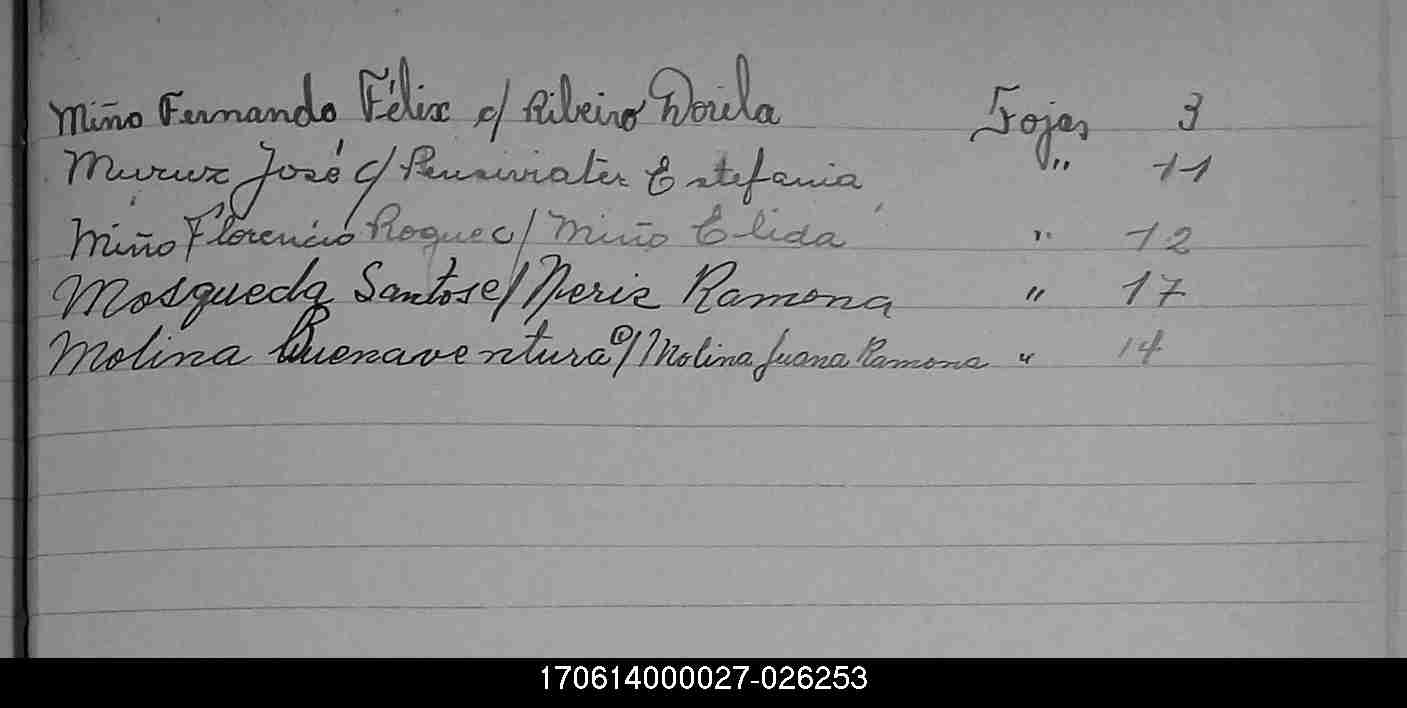 Miño Fernando Félix c/ Ribeiro Dorila Fojas 3
Muruz José c/ Estefania " 11
Miño Florencio Roque c/ Miño Elida " 12
Mosqueda Santos c/ Neris Ramona " 17
Molina Buenaventura c/ Molina Juana Ramona " 14
170614000027-026253